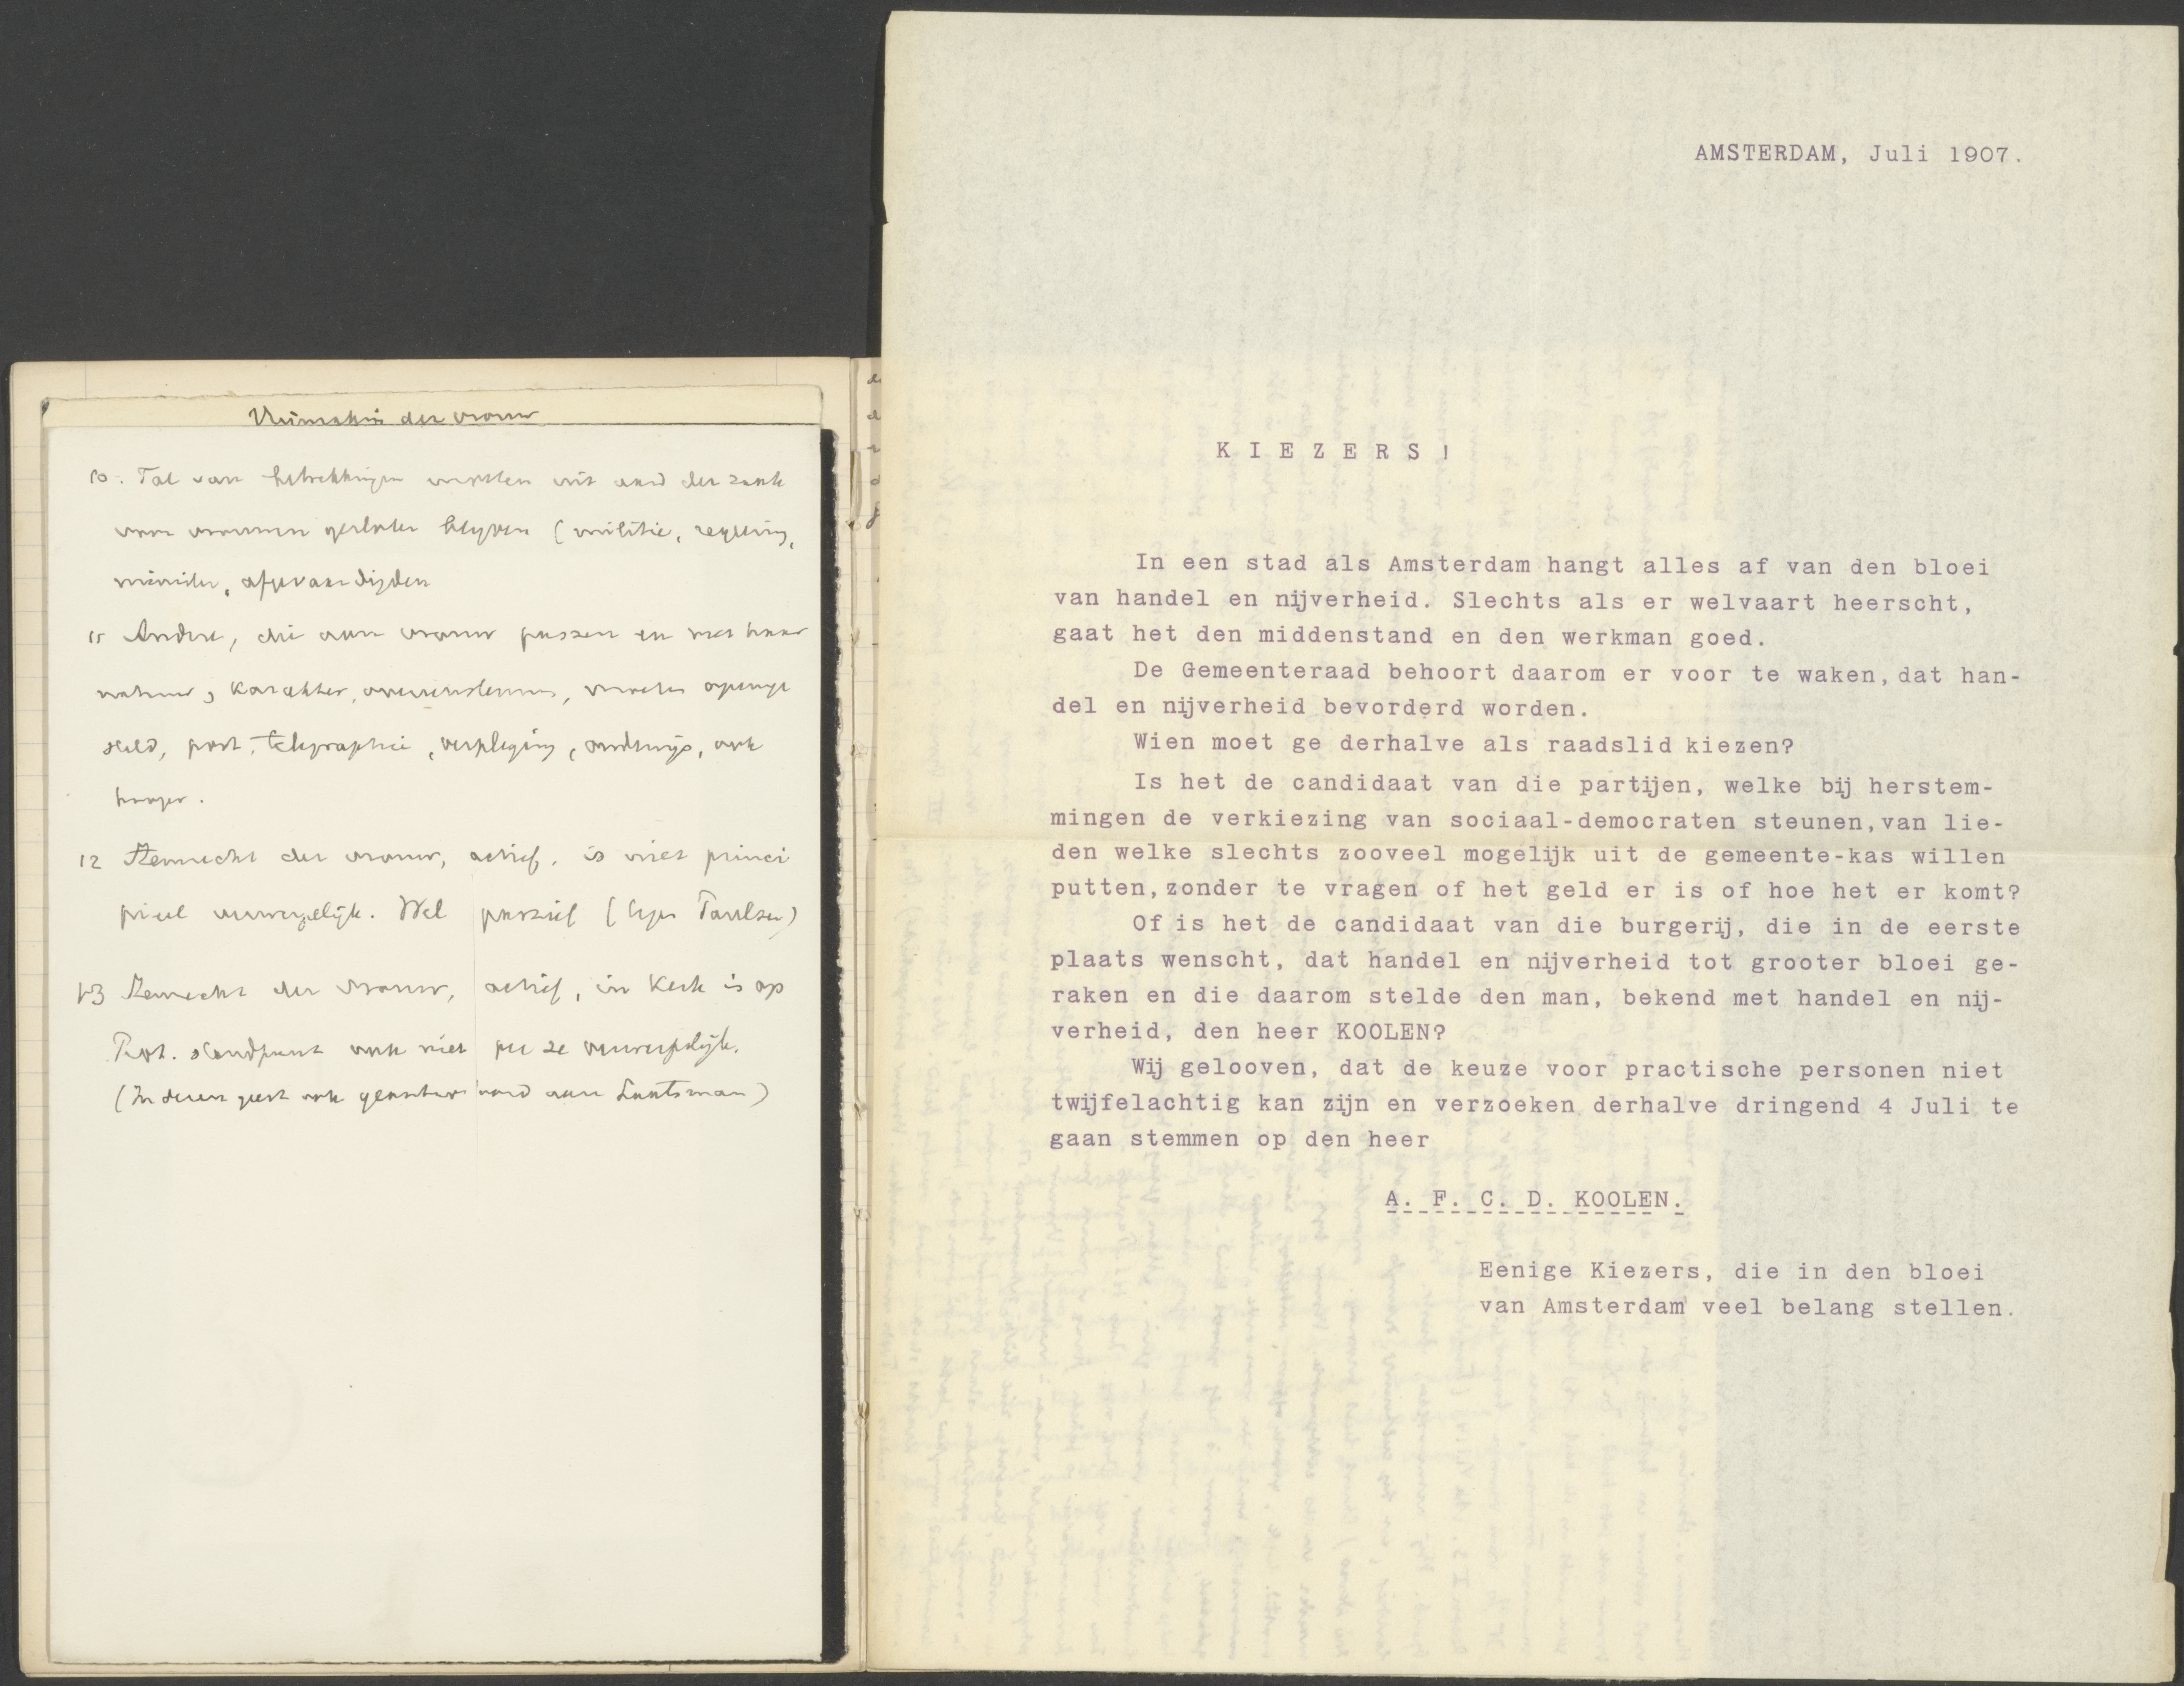 10. Tal van betrekkingen moeten uit aard der zaak
voor vrouwen gesloten blijven (militie, regering,
minister, afgevaardigden
11 Andere, die aan vrouw passen en met haar
natuur, karakter, overeenstemmen, moeten openge
steld, post, telegraphie, verpleging, onderwijs, ook
hooger.
12 Stemrecht der vrouw, actief, is niet princi
pieel verwerpelijk. Wel passief
13 Stemrecht der vrouw, actief, in Kerk is op
Prot. standpunt ook niet per se verwerpelijk.
(In dezen geest ook geantwoord aan
der vrouw
AMSTERDAM, Juli 1907.
K I E Z E R S !
In een stad als Amsterdam hangt alles af van den bloei
van handel en nijverheid. Slechts als er welvaart heerscht,
gaat het den middenstand en den werkman goed.
De Gemeenteraad behoort daarom er voor te waken, dat han-
del en nijverheid bevorderd worden.
Wien moet ge derhalve als raadslid kiezen?
Is het de candidaat van die partijen, welke bij herstem-
mingen de verkiezing van sociaal-democraten steunen, van lie-
den welke slechts zooveel mogelijk uit de gemeente-kas willen
putten, zonder te vragen of het geld er is of hoe het er komt?
Of is het de candidaat van die burgerij, die in de eerste
plaats wenscht, dat handel en nijverheid tot grooter bloei ge-
raken en die daarom stelde den man, bekend met handel en nij-
verheid, den heer KOOLEN?
Wij gelooven, dat de keuze voor practische personen niet
twijfelachtig kan zijn en verzoeken derhalve dringend 4 Juli te
gaan stemmen op den heer
A. F. C. D. KOOLEN.
Eenige Kiezers, die in den bloei
van Amsterdam veel belang stellen.